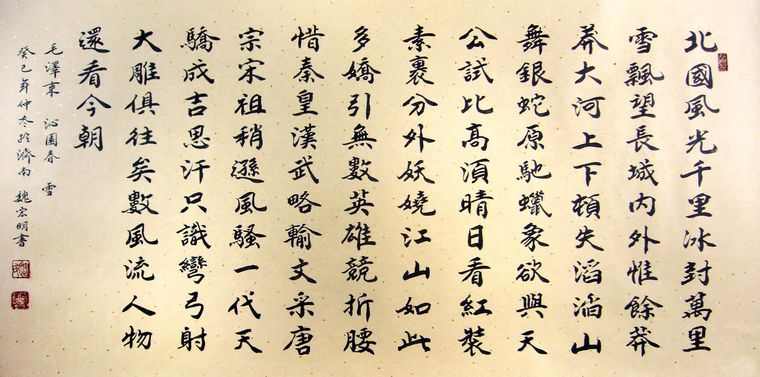 北國風光千里冰封萬里
雪飄望長城内外惟餘莽
莽大河上下頓失滔滔山
舞銀蛇原馳蠟象欲與天
公試比高須晴日看紅裝
素裹分外妖嬈江山如此
多嬌引無數英雄競折腰
惜秦皇漢武略輸文采唐
宗宋祖稍遜風騷一代天
驕成吉思汗只識彎弓射
大雕俱往矣數風流人物
還看今朝
毛澤東 沁園春 雪
癸巳年仲冬於濟南 魏宏明書